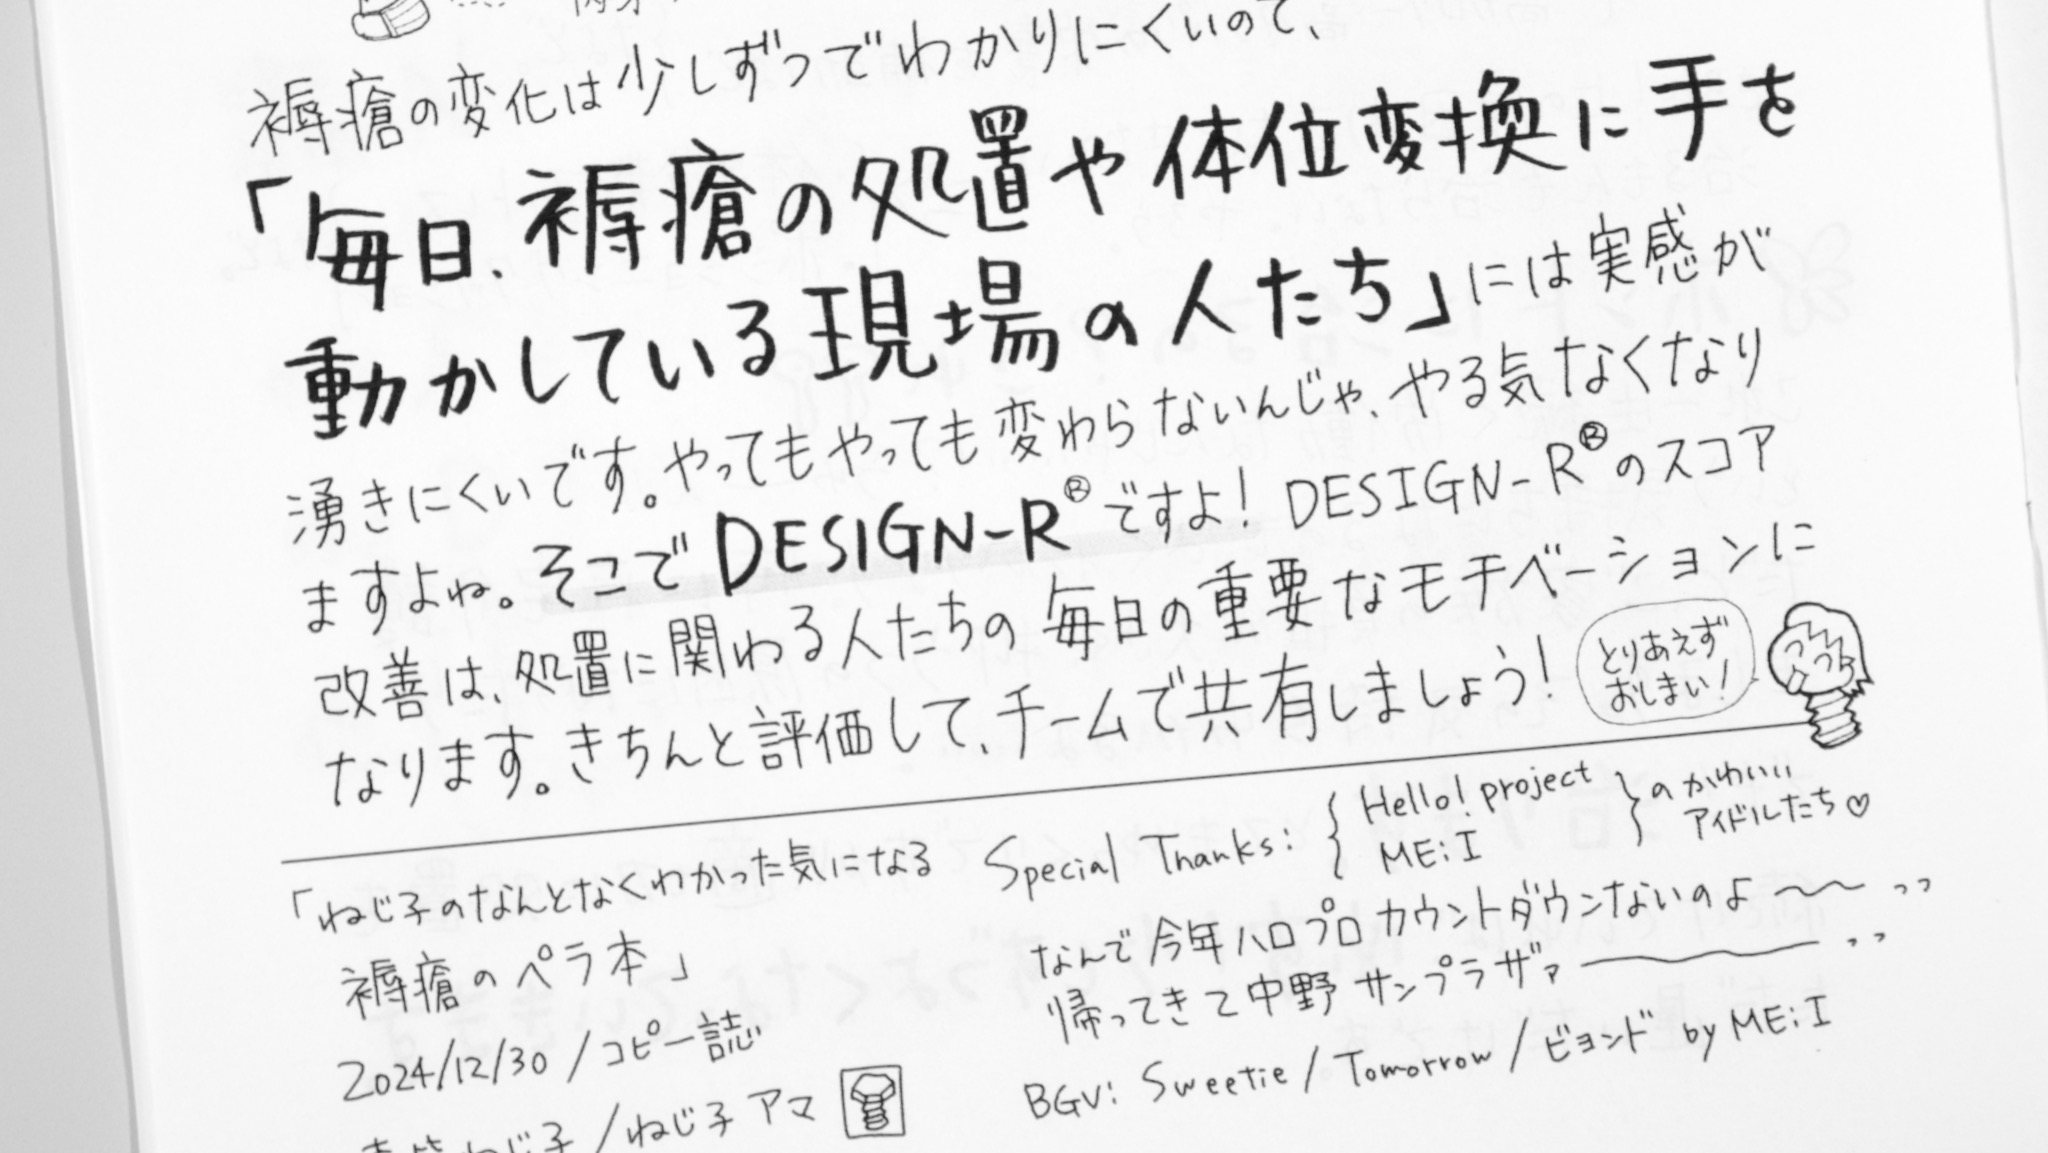 褥瘡の変化は少しずつでわかりにくいので、
「毎日、褥瘡の処置や体位変換に手を
動かしている現場の人たち」には実感が
湧きにくいです。やってもやっても変わらないんじゃ、やる気なくなり
ますよね。そこでDESIGN-R®ですよ! DESIGN-R®のスコア
改善は、処置に関わる人たちの毎日の重要なモチベーションに
なります。きちんと評価して、チームで共有しましょう!
とりあえず
おしまい!
「ねじ子のなんとなくわかった気になる
褥瘡のペラ本」
2024/12/30/コピー誌
ねじ子/ねじ子アマ
Special Thanks: {Hello! project
ME:I}のかわいい
アイドルたち♡
なんで今年ハロプロカウントダウンないのよ〜〜〃
帰ってきて中野サンプラザァ――〃
BGV: Sweetie/Tomorrow/ビヨンド by ME:I